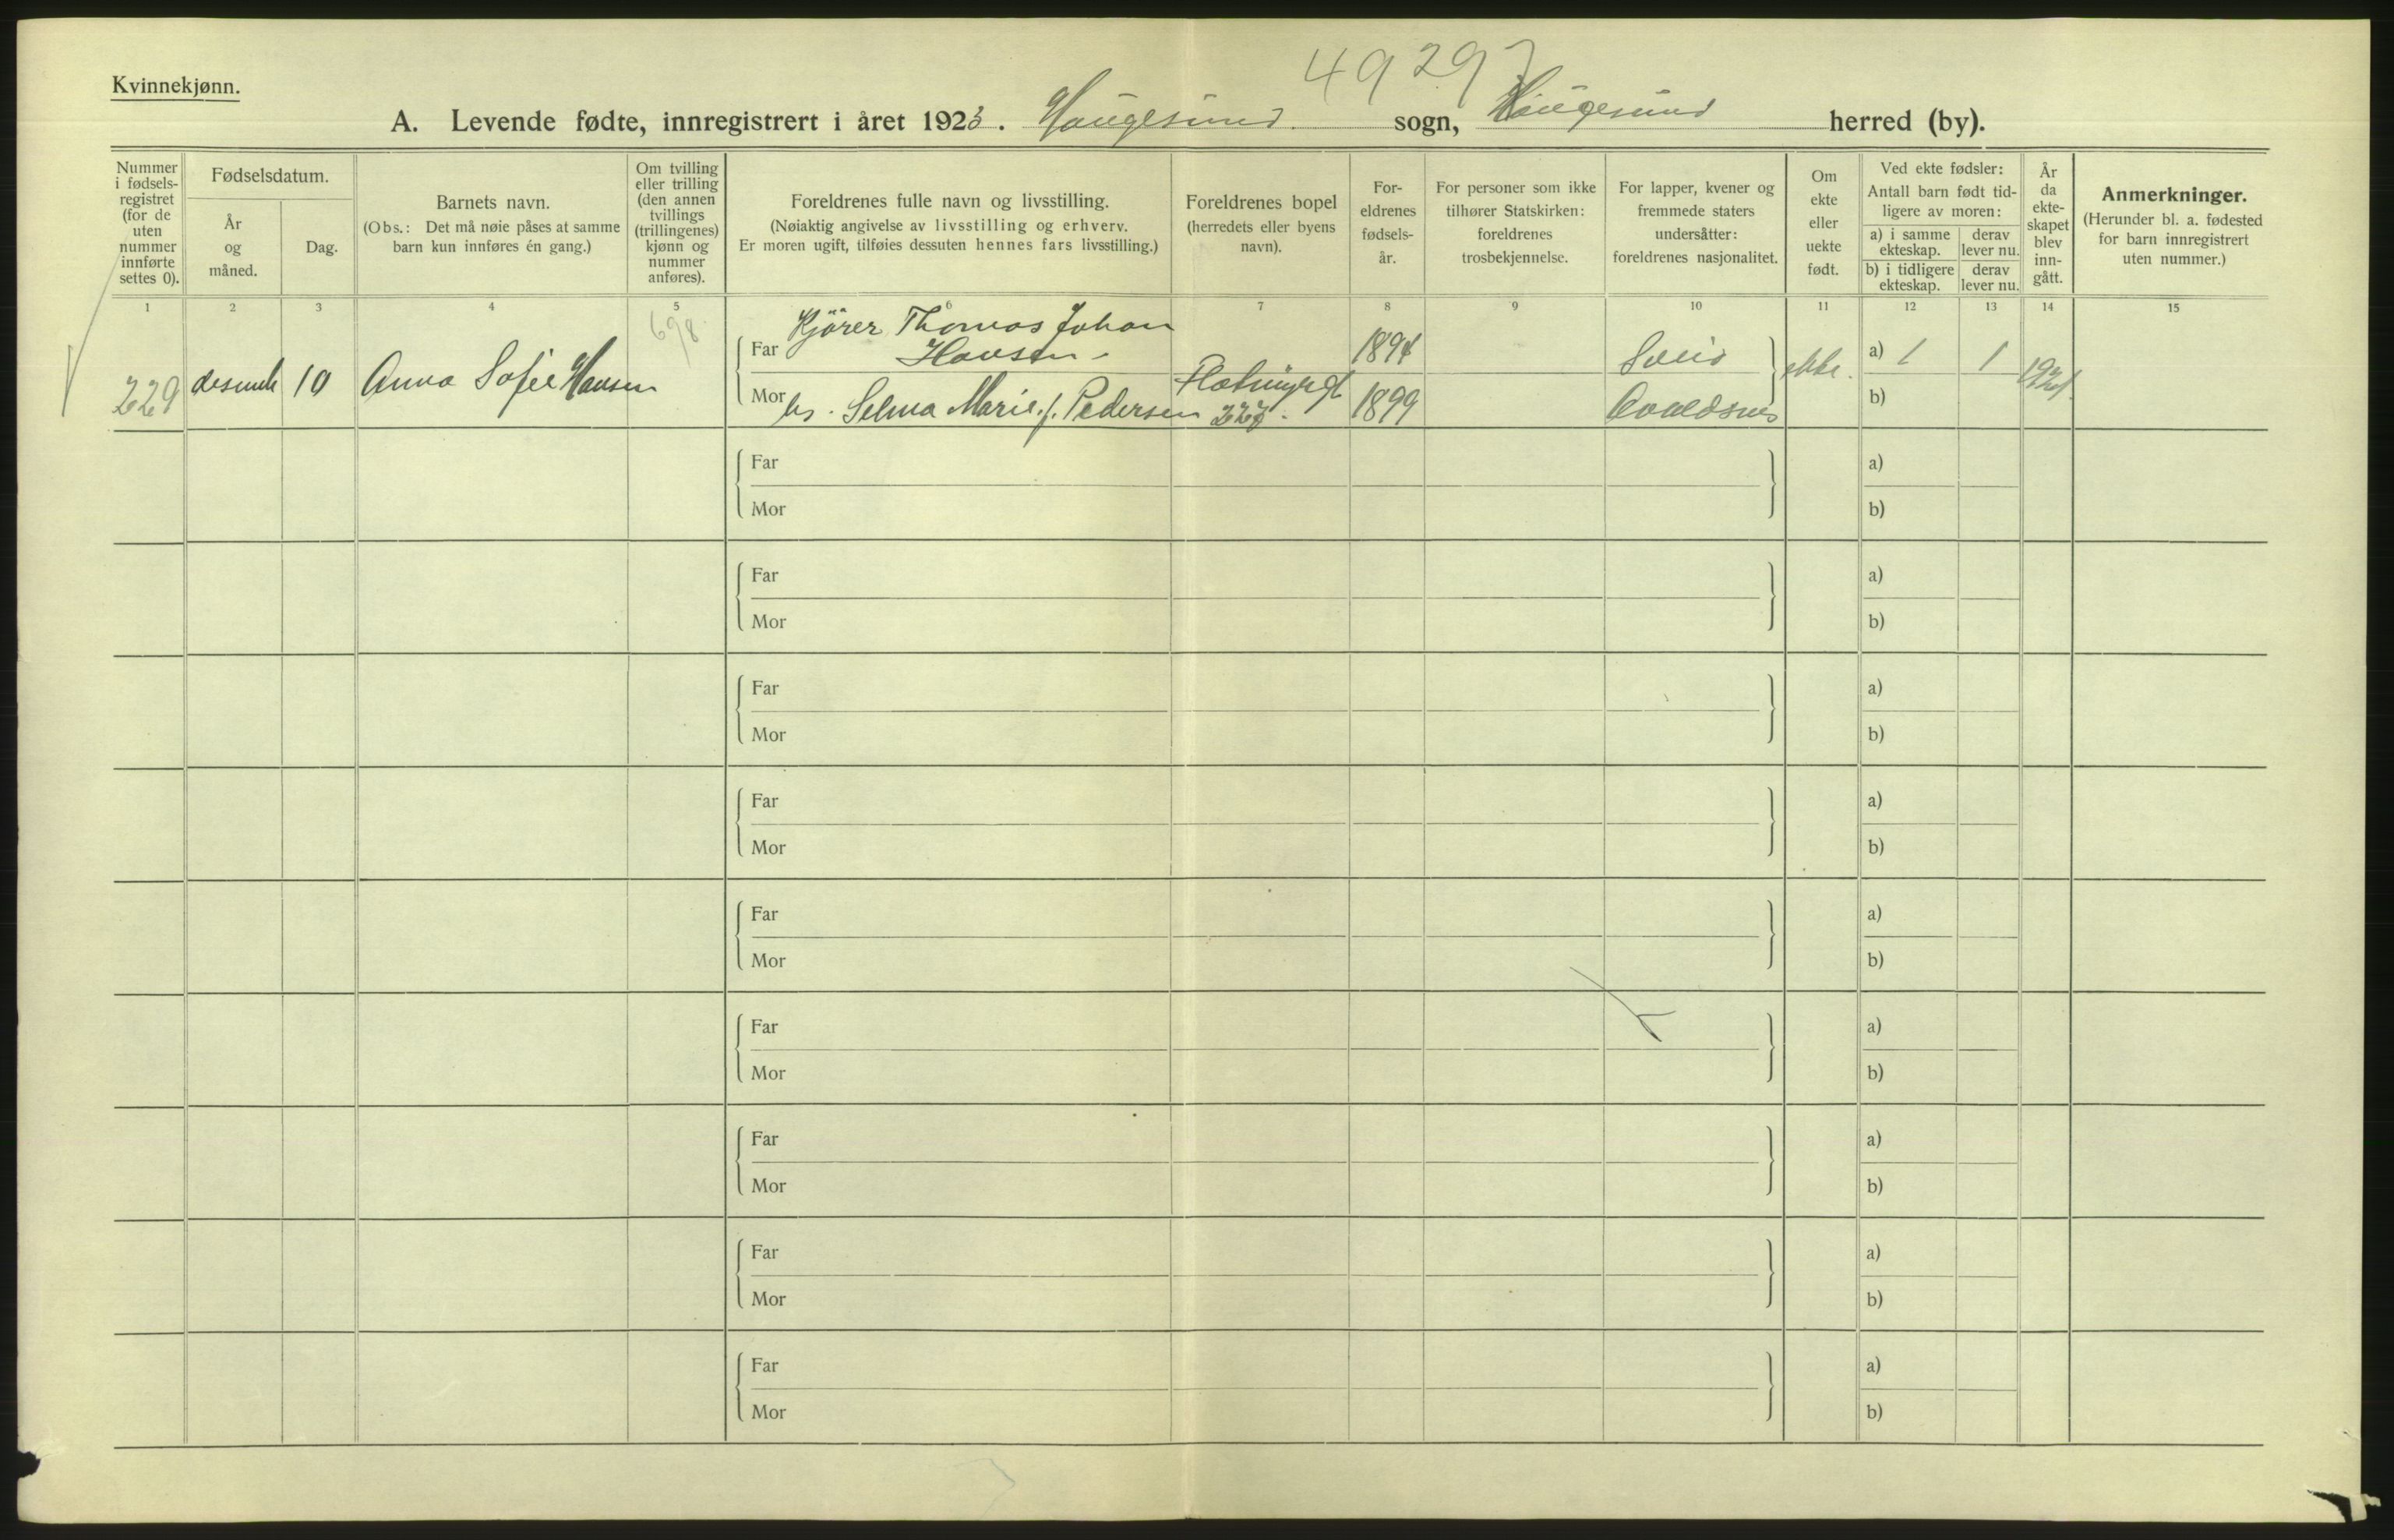 49297
Kvinnekjønn.
A. Levende fødte, innregistrert i året 1923. Haugesund sogn, Haugesund herred (by).
Nummer i fødsels- registret (for de uten nummer innførte settes 0).
Fødselsdatum.
År og måned.
Dag.
Barnets navn.
(Obs.: Det må nøie påses at samme barn kun innføres én gang.)
Om tvilling eller trilling (den annen tvillings (trillingenes) kjønn og nummer anføres).
Foreldrenes fulle navn og livsstilling.
(Nøiaktig angivelse av livsstilling og erhverv.
Er moren ugift, tilføies dessuten hennes fars livsstilling.)
Foreldrenes bopel
(herredets eller byens navn).
For- eldrenes fødsels- år.
For personer som ikke tilhører Statskirken: foreldrenes trosbekjennelse.
For lapper, kvener og fremmede staters undersåtter: foreldrenes nasjonalitet.
Om ekte eller uekte født.
Ved ekte fødsler:
Antall barn født tid- ligere av moren:
a) i samme ekteskap.
derav lever nu.
b) i tidligere ekteskap.
derav lever nu.
År da ekte- skapet blev inn- gått.
Anmerkninger.
(Herunder bl. a. fødested for barn innregistrert uten nummer.)
1 2 3 4 5 6 7 8 9 10 11 12 13 14 15
698
229 desemb 10 Anna Sofie Hansen
Far Kjörer Thomas Johan Hansen 1894 a) 1 1
Mor hs. Selma Marie f. Pedersen 1899 Avaldsnes ekte. b)
Far a)
Mor b)
Far a)
Mor b)
Far a)
Mor b)
Far a)
Mor b)
Far a)
Mor b)
Far a)
Mor b)
Far a)
Mor b)
Far a)
Mor b)
Far a)
Mor b)